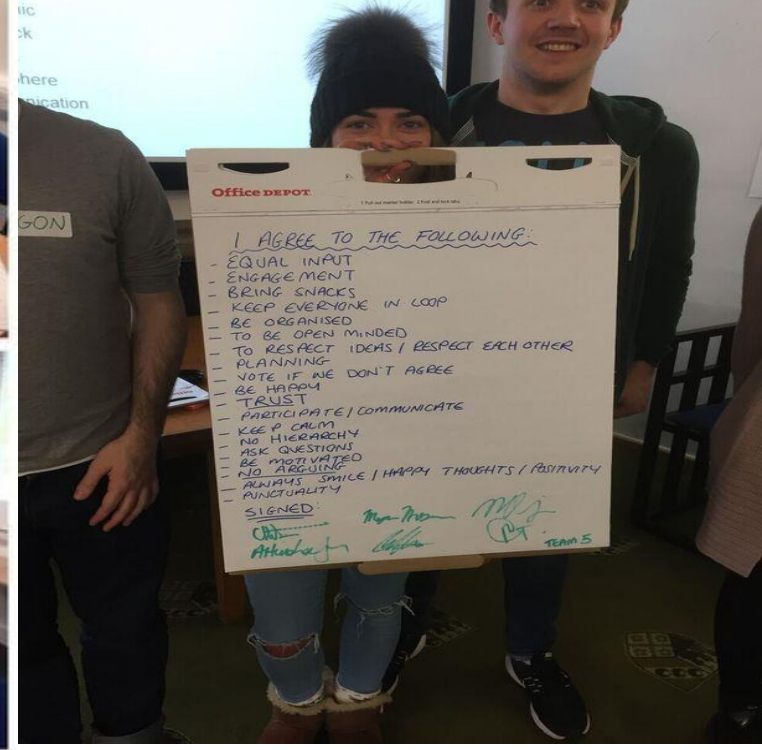 ck
here
nication
GON
Office DEPOT
I AGREE TO THE FOLLOWING:
- EQUAL INPUT
- ENGAGEMENT
- BRING SNACKS
- KEEP EVERYONE IN LOOP
- BE ORGANISED
- TO BE OPEN MINDED
- TO RESPECT IDEAS / RESPECT EACH OTHER
- PLANNING
- VOTE IF WE DON'T AGREE
- BE HAPPY
- TRUST
- PARTICIPATE / COMMUNICATE
- KEEP CALM
- NO HIERARCHY
- ASK QUESTIONS
- BE MOTIVATED
- NO ARGUING
- ALWAYS SMILE / HAPPY THOUGHTS / POSITIVITY
- PUNCTUALITY
SIGNED:
TEAM 5